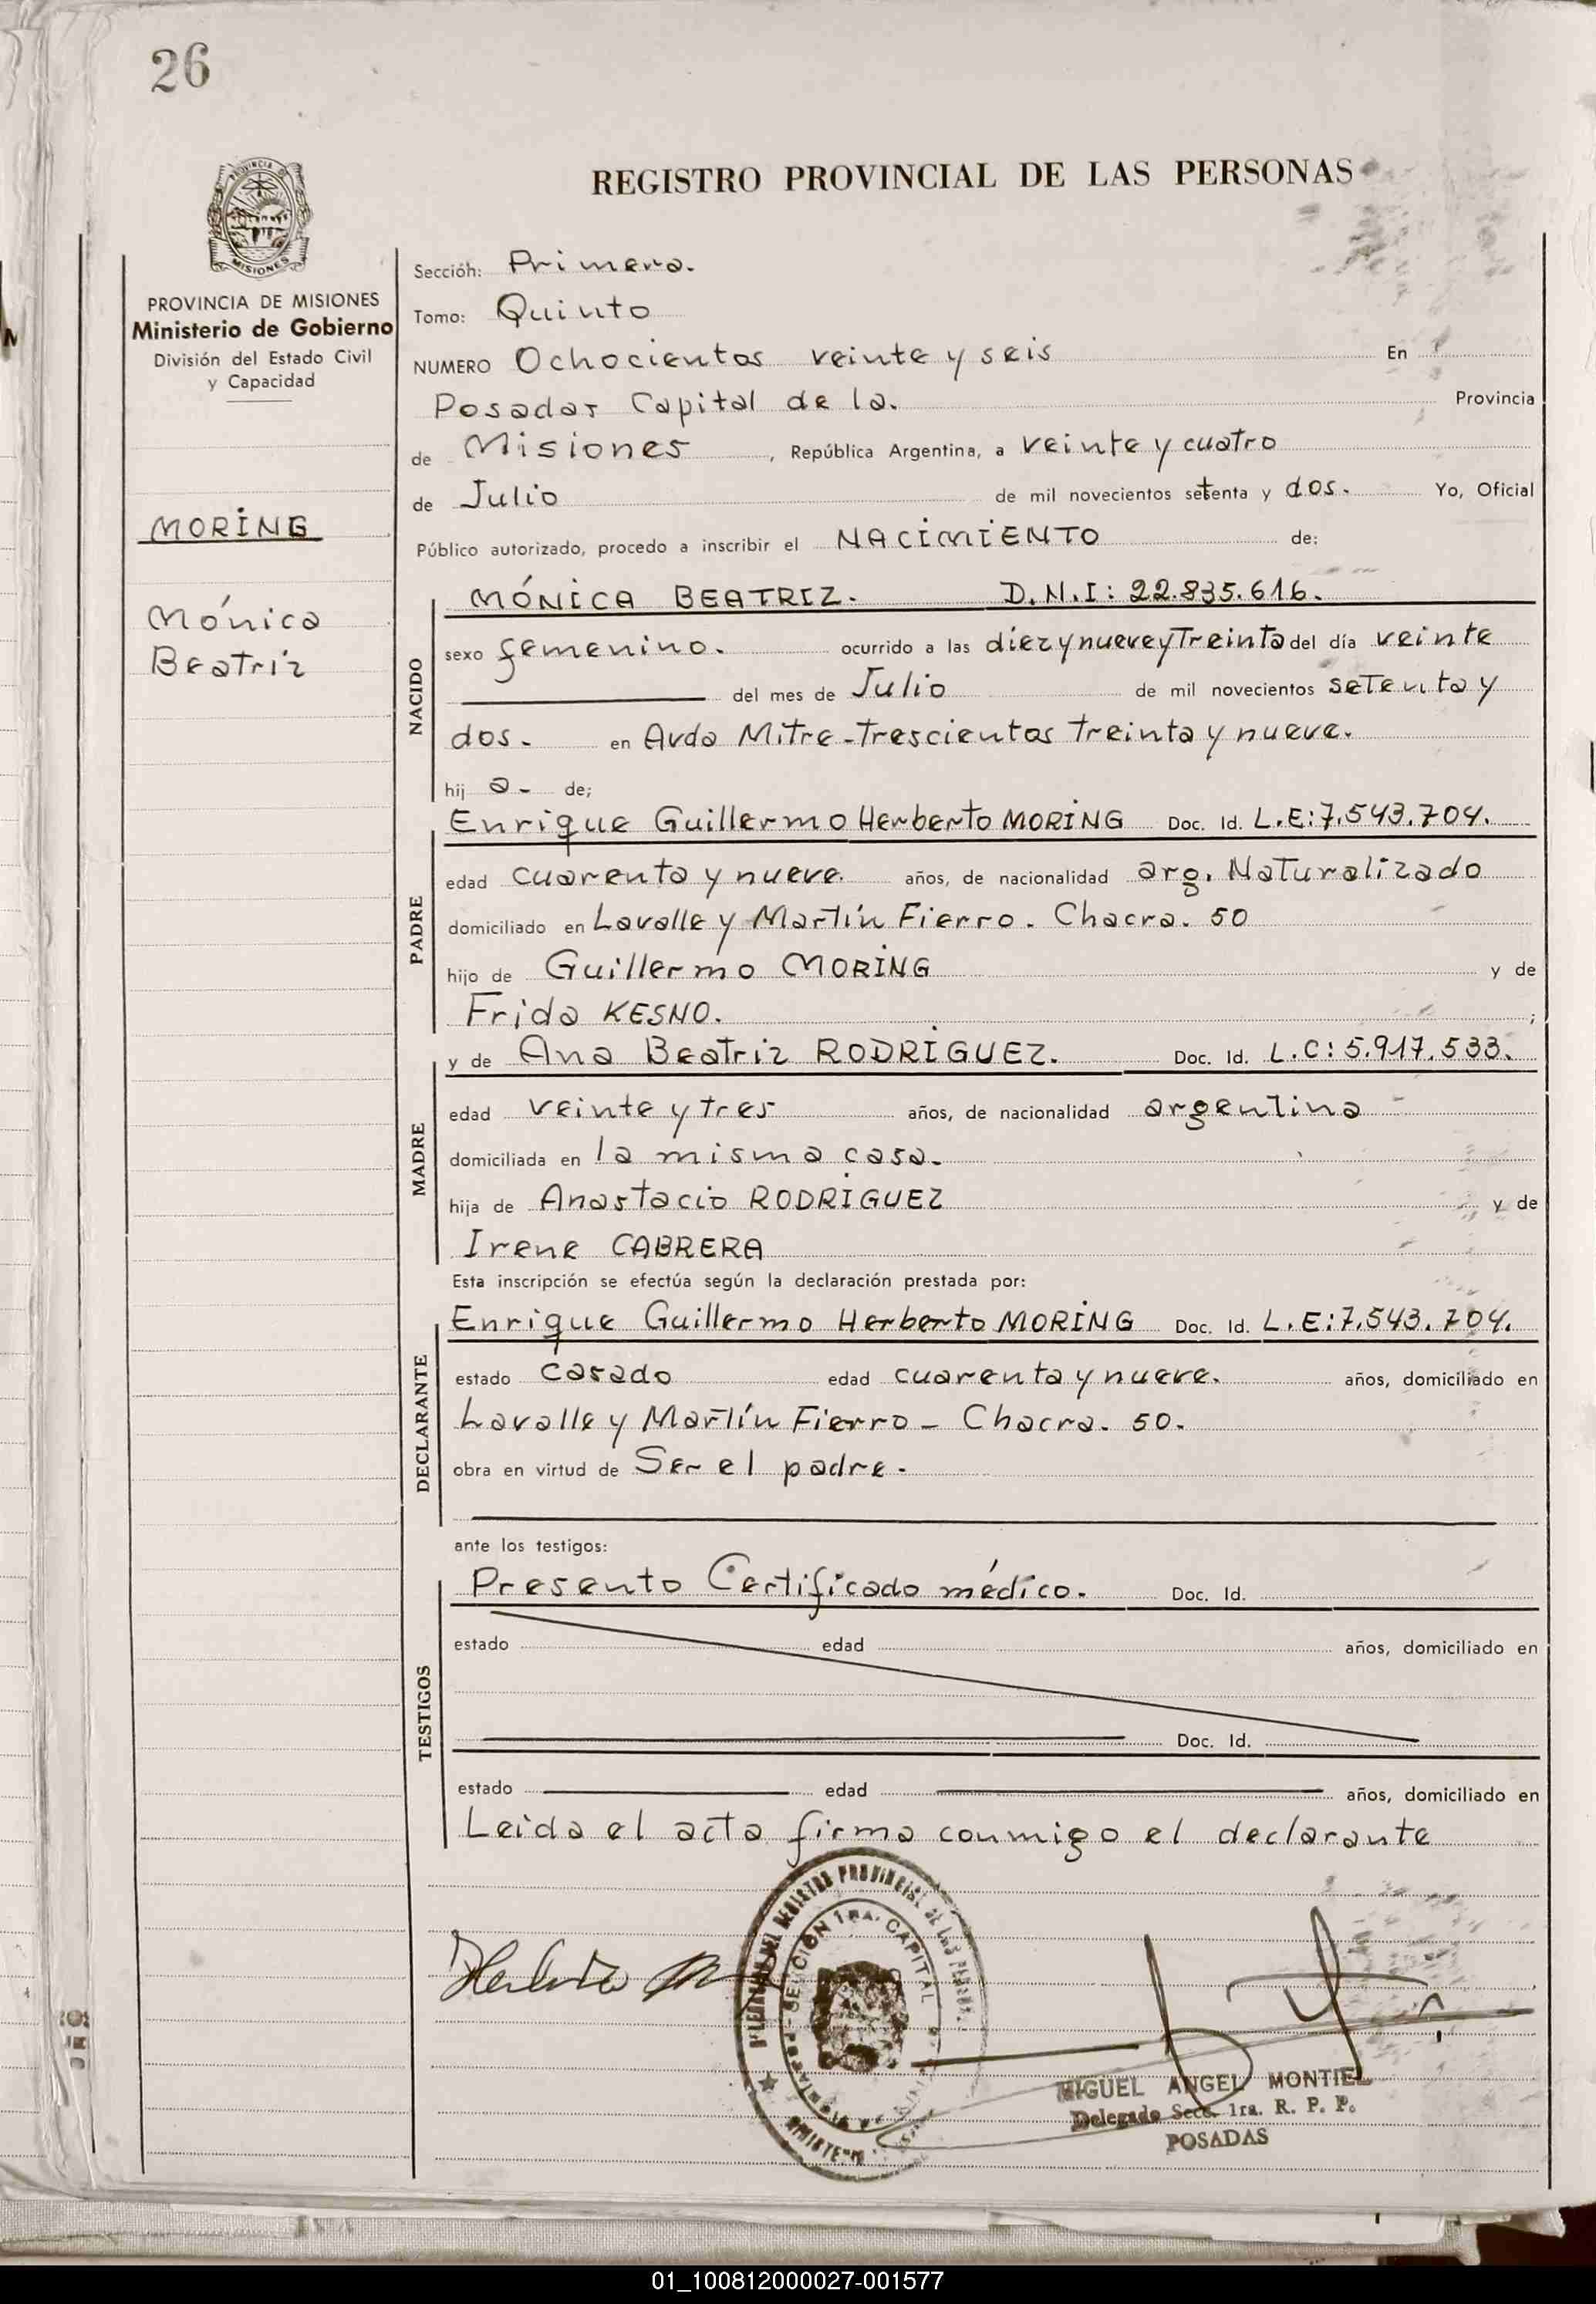 26
PROVINCIA DE
MISIONES
PROVINCIA DE MISIONES
Ministerio de Gobierno
División del Estado Civil
y Capacidad
MORING
Mónica
Beatriz
REGISTRO PROVINCIAL DE LAS PERSONAS
Sección: Primera.
Tomo: Quinto
NUMERO Ochocientos veinte y seis En
Posadas Capital de la. Provincia
de Misiones, República Argentina, a veinte y cuatro
de Julio de mil novecientos setenta y dos. Yo, Oficial
Público autorizado, procedo a inscribir el NACIMIENTO de:
NACIDO
MÓNICA BEATRIZ. D.N.I: 22.835.616.
sexo femenino. ocurrido a las diez y nueve y Treinta del día veinte
del mes de Julio de mil novecientos setenta y
dos. en Avda Mitre-Trescientos treinta y nueve.
hij a- de;
PADRE
Enrique Guillermo Herberto MORING Doc. Id. L.E:7.543.704.
edad cuarenta y nueve. años, de nacionalidad arg. Naturalizado
domiciliado en Lavalle y Martín Fierro. Chacra. 50
hijo de Guillermo MORING y de
Frida KESNO. ;
MADRE
y de Ana Beatriz RODRIGUEZ. Doc. Id. L.C: 5.917.533.
edad veinte y tres años, de nacionalidad argentina
domiciliada en la misma casa.
hija de Anastacio RODRIGUEZ y de
Irene CABRERA
Esta inscripción se efectúa según la declaración prestada por:
DECLARANTE
Enrique Guillermo Herberto MORING Doc. Id. L.E:7.543.704.
estado casado edad cuarenta y nueve. años, domiciliado en
Lavalle y Martín Fierro - Chacra. 50.
obra en virtud de Ser el padre.
ante los testigos:
TESTIGOS
Presento Certificado médico. Doc. Id.
estado edad años, domiciliado en
Doc. Id.
estado edad años, domiciliado en
Leida el acta firma conmigo el declarante
SECCION 1RA. CAPITAL
MIGUEL ANGEL MONTIEL
Delegado Secc. 1ra. R. P. P.
POSADAS
01_100812000027-001577